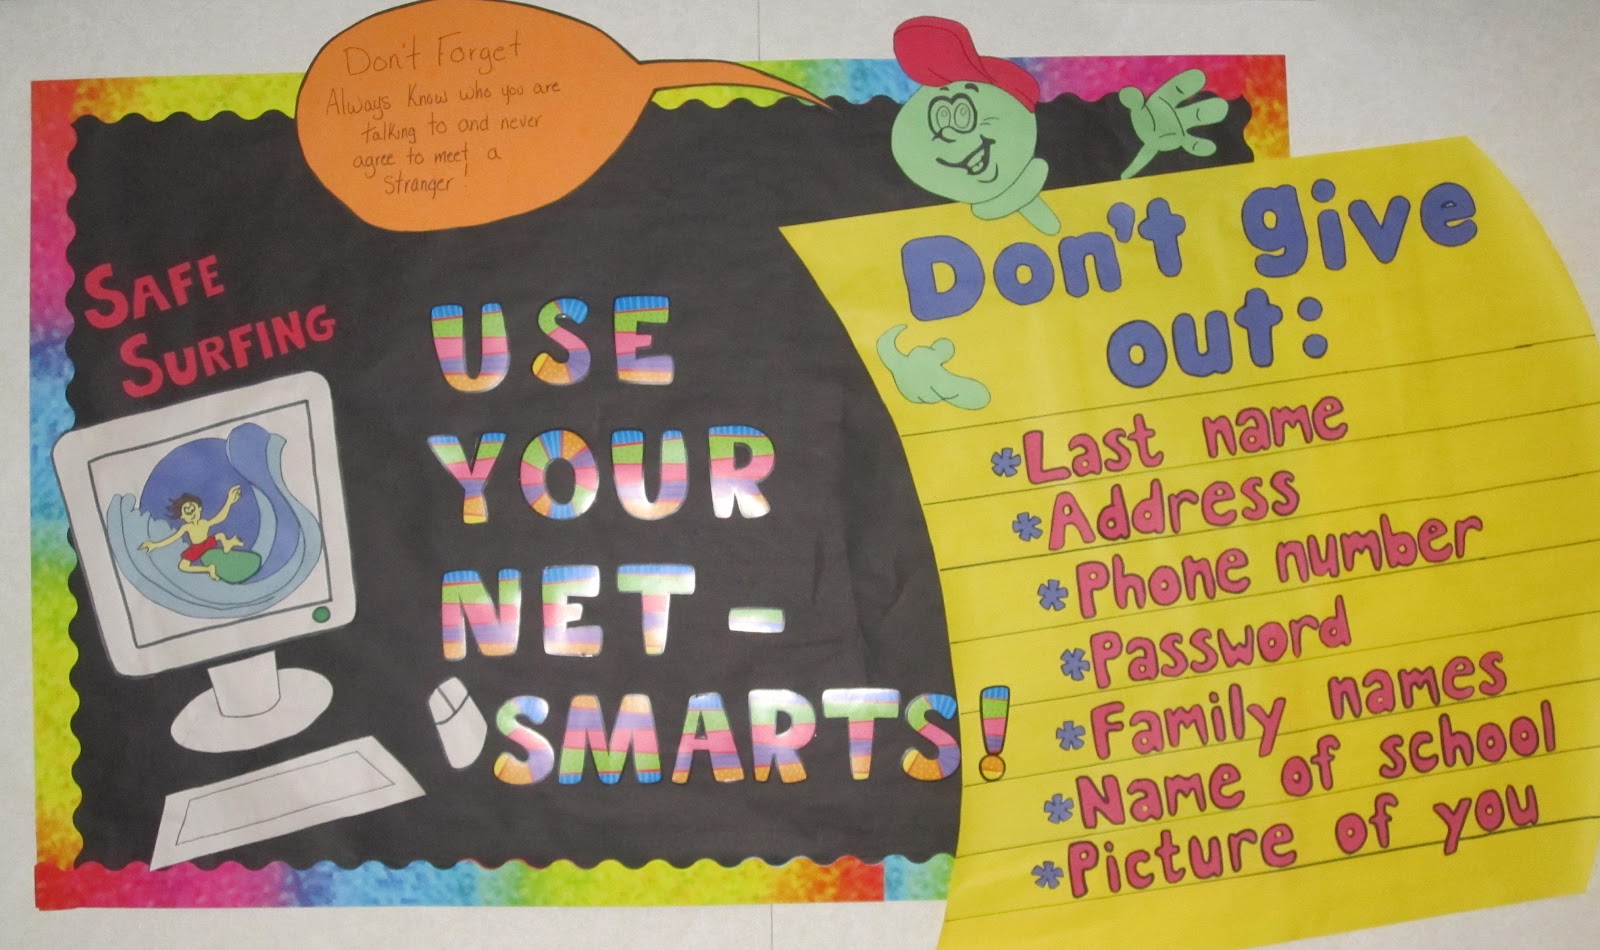 Don't Forget
Always Know who you are
talking to and never
agree to meet a
stranger!
SAFE
SURFING
USE
YOUR
NET-
SMARTS!
Don't give
out:
*Last name
*Address
*Phone number
*Password
*Family names
*Name of school
*Picture of you